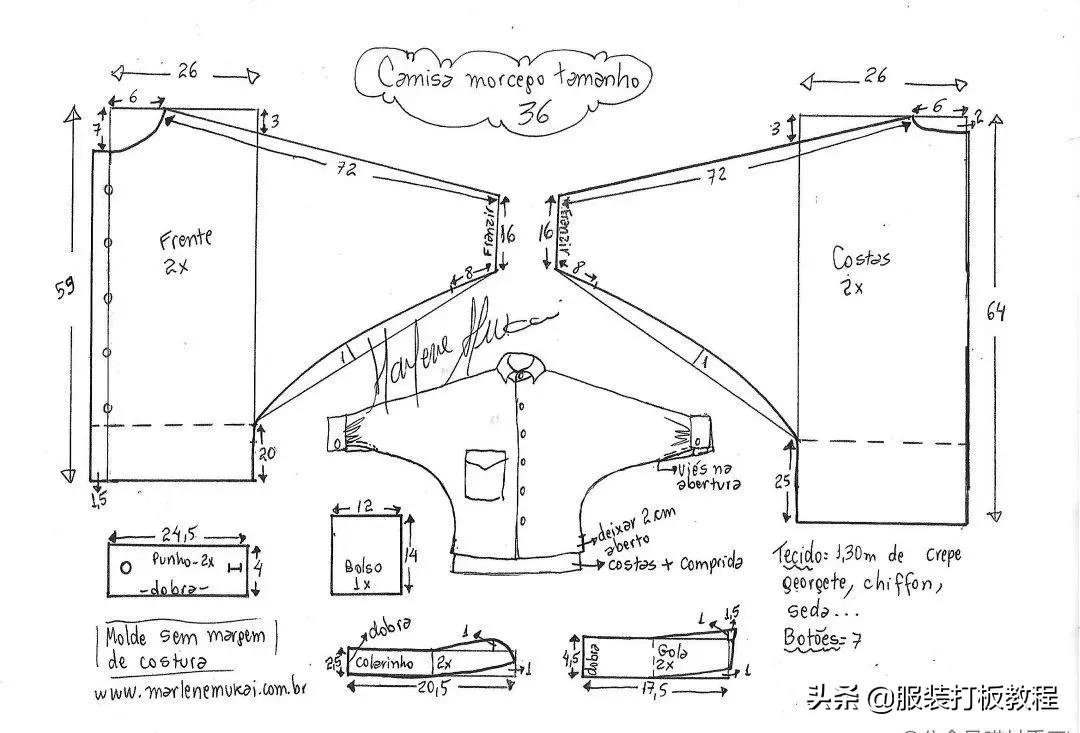 Camisa morcego tamanho
36
26
6
7
3
72
Franzir
16
8
1
Frente
2x
59
20
1,5
26
6
2
3
72
Franzir
16
8
1
Costas
2x
64
25
Marlene Mukai
viés na
abertura
deixar 2 cm
aberto
costas + comprida
24,5
Punho-2x
4
-dobra-
12
Bolso
1x
14
Molde sem margem
de costura
www.marlenemukai.com.br
dobra
1
2,5
Colarinho
2x
1
20,5
1
1,5
4,5
dobra
Gola
2x
1
17,5
Tecido: 1,30m de crepe
georgete, chiffon,
seda...
Botões=7
头条 @服装打板教程